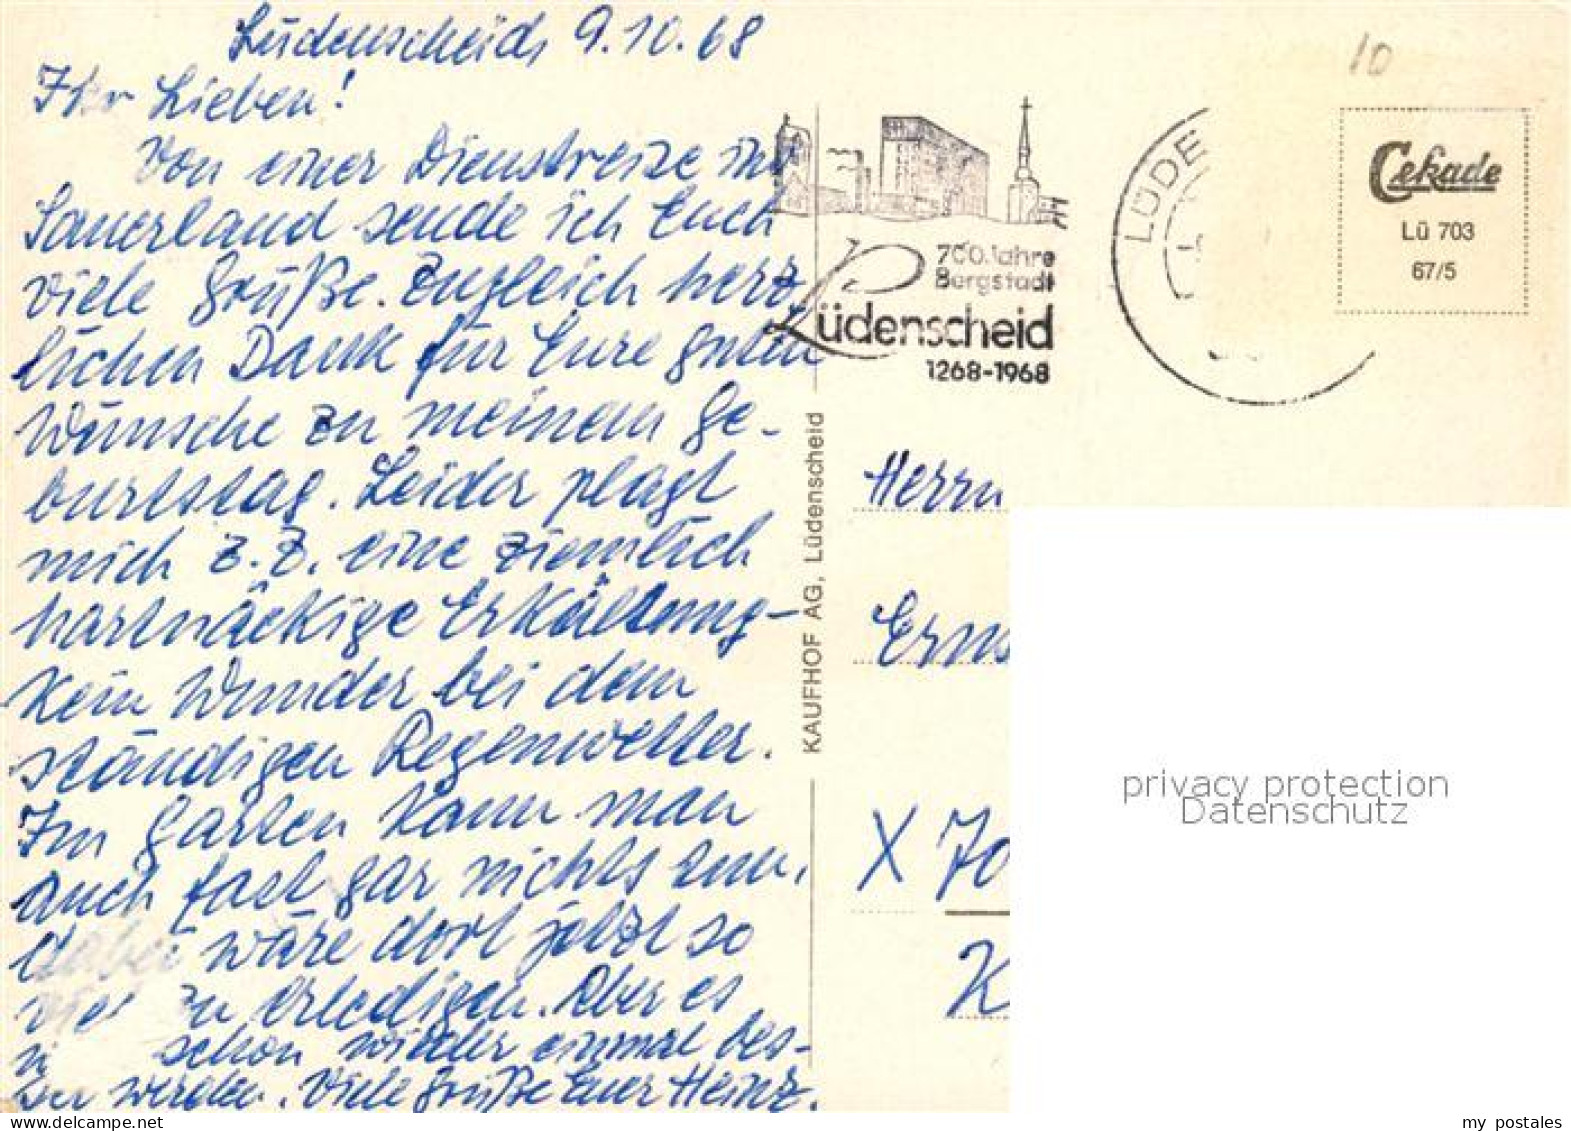 Lüdenscheid, 9.10.68
Ihr Lieben!
Von einer Dienstreise ins
Sauerland sende ich Euch
viele Grüße. Zugleich herz-
lichen Dank für Eure guten
Wünsche zu meinem Ge-
burtstag. Leider plagt
mich z.Z. eine ziemlich
hartnäckige Erkältung -
kein Wunder bei dem
ständigen Regenwetter.
Im Garten kann man
auch fast gar nichts tun,
dabei wäre dort jetzt so
viel zu erledigen. Aber es
schon wieder einmal bes-
ser werden. Viele Grüße Euer Heinz.
700 Jahre
Bergstadt
Lüdenscheid
1268-1968
LÜDE
10
Cekade
Lü 703
67/5
KAUFHOF AG, Lüdenscheid
Herrn
Erns
X 70
K
privacy protection
Datenschutz
my_postales